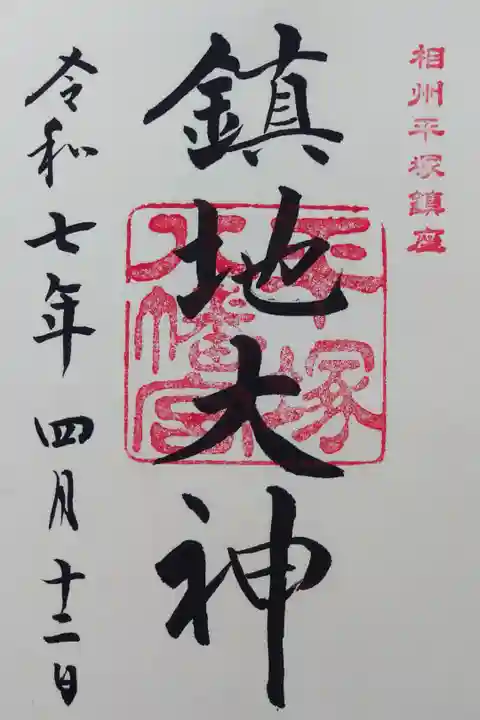 相州平塚鎮座
鎮地大神
平塚八幡宮
令和七年四月十二日